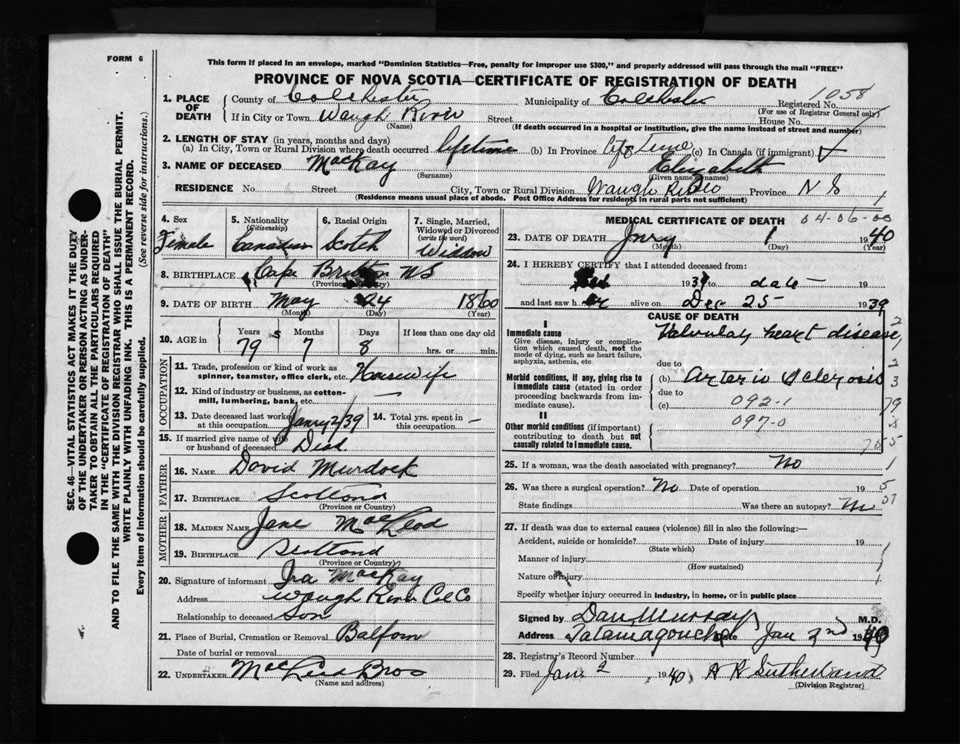 FORM 6
This form if placed in an envelope, marked "Dominion Statistics—Free, penalty for improper use $300," and properly addressed will pass through the mail "FREE"
PROVINCE OF NOVA SCOTIA—CERTIFICATE OF REGISTRATION OF DEATH
SEC. 46—VITAL STATISTICS ACT MAKES IT THE DUTY
OF THE UNDERTAKER OR PERSON ACTING AS UNDER-
TAKER TO OBTAIN ALL THE PARTICULARS REQUIRED
IN THE "CERTIFICATE OF REGISTRATION OF DEATH"
AND TO FILE THE SAME WITH THE DIVISION REGISTRAR WHO SHALL ISSUE THE BURIAL PERMIT.
WRITE PLAINLY WITH UNFADING INK. THIS IS A PERMANENT RECORD.
Every item of information should be carefully supplied. (See reverse side for instructions.)
1. PLACE OF DEATH
County of Colchester Municipality of Colchester Registered No. 1058
(For use of Registrar General only)
If in City or Town Waugh River Street House No.
(Name) (If death occurred in a hospital or institution, give the name instead of street and number)
2. LENGTH OF STAY (in years, months and days)
(a) In City, Town or Rural Division where death occurred lifetime (b) In Province (c) In Canada (if immigrant)
3. NAME OF DECEASED MacKay Elizabeth
(Surname) (Given names)
RESIDENCE No. Street City, Town or Rural Division Waugh River Province N S
(Residence means usual place of abode. Post Office Address for residents in rural parts not sufficient)
4. Sex
Female
5. Nationality (Citizenship)
Canadian
6. Racial Origin
Scotch
7. Single, Married, Widowed or Divorced (write the word)
Widdow
8. BIRTHPLACE Cape Britton NS
(Province or Country)
9. DATE OF BIRTH May 24 1860
(Month) (Day) (Year)
10. AGE in Years Months Days If less than one day old
79 7 8 hrs. or min.
OCCUPATION
11. Trade, profession or kind of work as spinner, teamster, office clerk, etc. Housewife
12. Kind of industry or business, as cotton-mill, lumbering, bank, etc. —
13. Date deceased last worked at this occupation 14. Total yrs. spent in this occupation —
15. If married give name of wife or husband of deceased
FATHER
16. NAME David Murdock
17. BIRTHPLACE Scotland
(Province or Country)
MOTHER
18. MAIDEN NAME Jane MacLeod
19. BIRTHPLACE Scotland
(Province or Country)
20. Signature of informant Ira MacKay
Address Waugh River Col Co
Relationship to deceased Son
21. Place of Burial, Cremation or Removal
Date of burial or removal
22. UNDERTAKER Bros
(Name and address)
MEDICAL CERTIFICATE OF DEATH 04-06-00
23. DATE OF DEATH Jnry 1 1940
(Month) (Day) (Year)
24. I HEREBY CERTIFY that I attended deceased from:
19 to date 19
and last saw h alive on Dec 25 1939
CAUSE OF DEATH
I
Immediate cause
Give disease, injury or complication which caused death, not the mode of dying, such as heart failure, asphyxia, asthenia, etc.
Valvular heart disease
due to
Morbid conditions, if any, giving rise to immediate cause (stated in order proceeding backwards from immediate cause).
(b) Arterio Sclerosis
due to
(c) 092-1
II
Other morbid conditions (if important) contributing to death but not causally related to immediate cause.
097-0
25. If a woman, was the death associated with pregnancy? No
26. Was there a surgical operation? No Date of operation 19
State findings Was there an autopsy? No
27. If death was due to external causes (violence) fill in also the following:—
Accident, suicide or homicide? Date of injury 19
(State which)
Manner of injury
(How sustained)
Nature of injury
Specify whether injury occurred in industry, in home, or in public place
Signed by Dan Murray M.D.
Address Tatamagouche Date Jan 2nd 1940
28. Registrar's Record Number
29. Filed Jan. 2 1940 A K Sutherland
(Division Registrar)